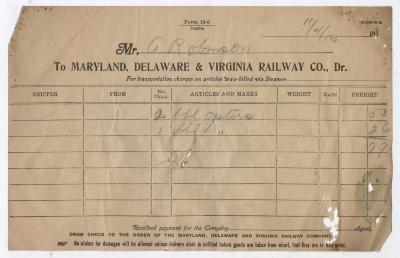 Form 19-S
11/4/16 191
Mr. A Robinson
To MARYLAND, DELAWARE & VIRGINIA RAILWAY CO., Dr.
For transportation charges on articles way-billed via Steamer
SHIPPER FROM No. Pkgs. ARTICLES AND MARKS WEIGHT RATE FREIGHT
2 bbl oysters 53
1 bbl " 26
79
Received payment for the Company, Agent.
DRAW CHECK TO THE ORDER OF THE MARYLAND, DELAWARE AND VIRGINIA RAILWAY COMPANY
No claims for damages will be allowed unless delivery clerk is notified before goods are taken from wharf, that they are in bad order.